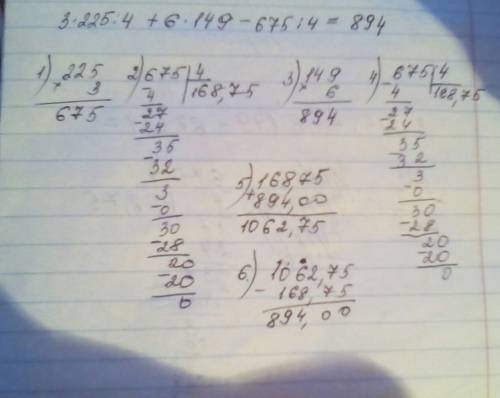 3·225·4 + 6·149 - 675:4 = 894
1) 225
× 3
675
2) 675 | 4
4 | 168,75
27
-24
35
-32
3
-0
30
-28
20
-20
0
3) 149
× 6
894
4) -675 | 4
4 | 168,75
27
-24
35
-32
3
-0
30
-28
20
-20
0
5) 168,75
+894,00
1062,75
6) 1062,75
- 168,75
894,00